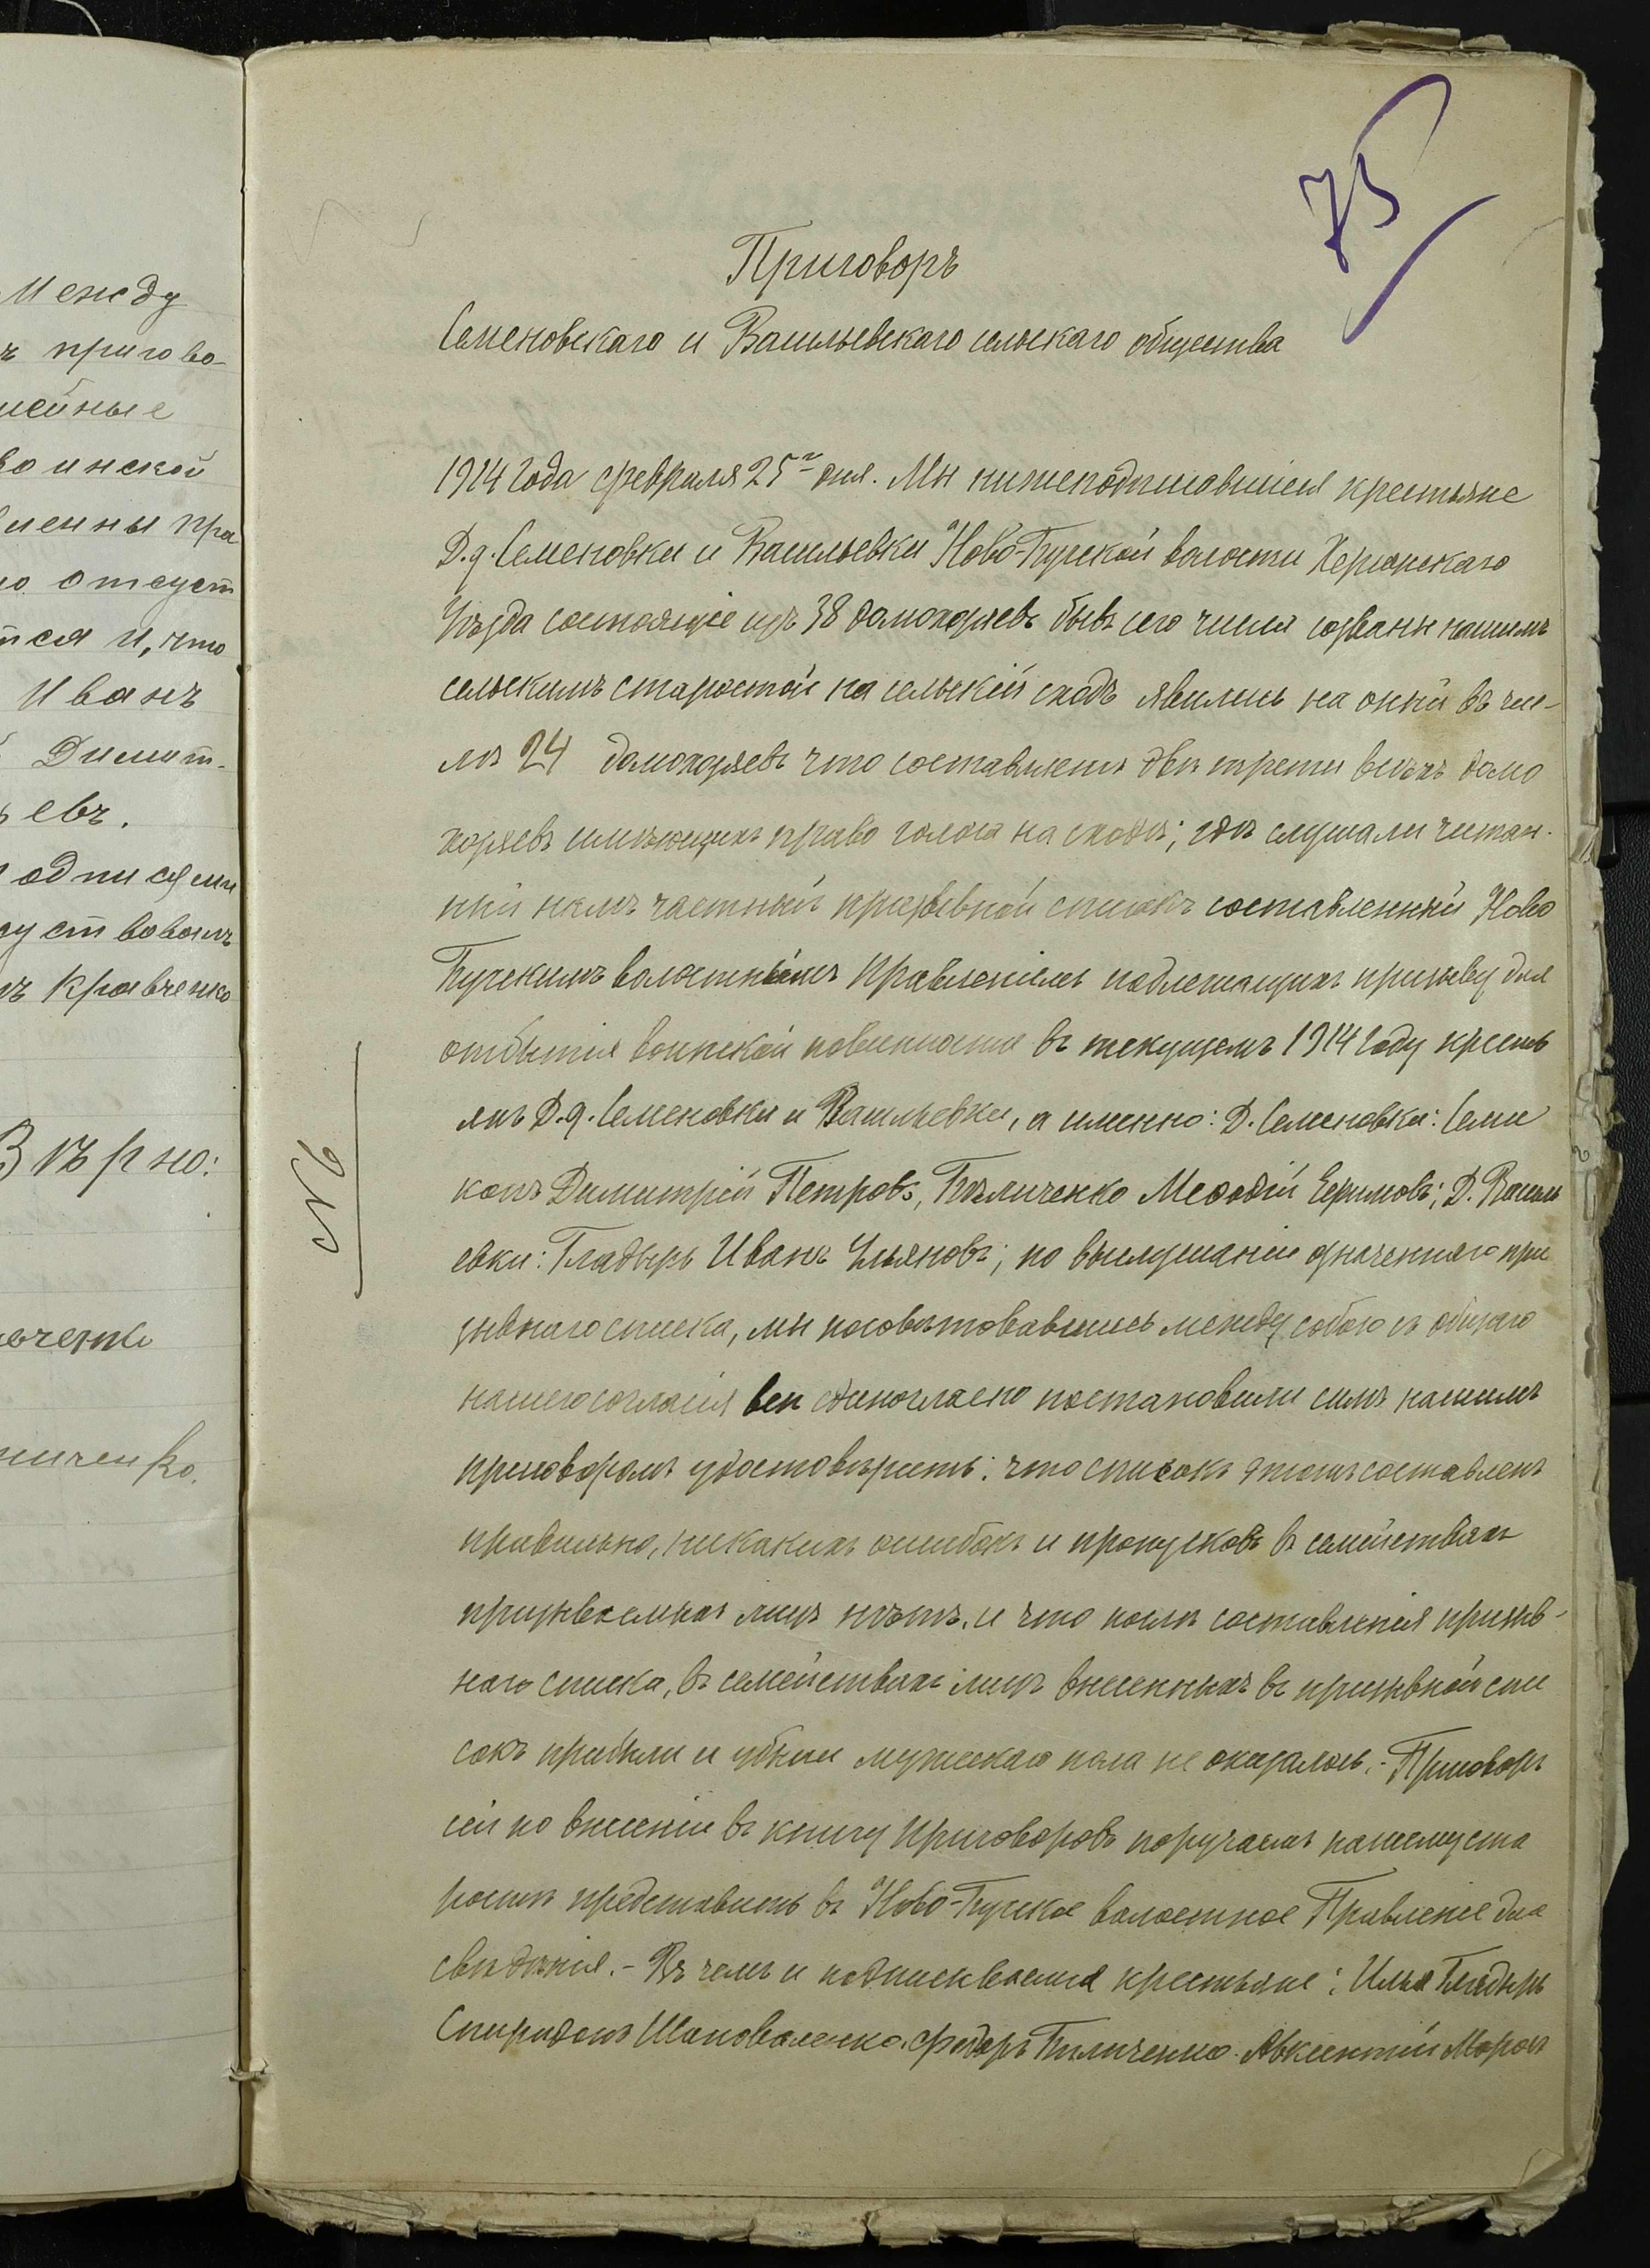 75
Приговоръ
Семеновскаго и Васильевскаго сельскаго общества
1914 года февраля 25го дня. Мы нижеподписавшіеся крестьяне
Д.д. Семеновки и Васильевки Ново-Бугской волости Херсонскаго
Уѣзда состоящіе изъ 38 домохозяевъ бывъ сего числа созваны нашимъ
сельскимъ старостой на сельскій сходъ явились на оный въ чис-
лѣ 24 домохозяевъ что составляетъ двѣ трети всѣхъ домо
хозяевъ имѣющихъ право голоса на сходѣ; гдѣ слушали читан-
ный намъ частный призывной списокъ составленный Ново
Бугскимъ волостнымъ Правленіемъ подлежащихъ призыву для
отбытія воинской повинности въ текущемъ 1914 году кресть
янъ Д.д. Семеновки и Васильевки, а именно: Д. Семеновки: Семи
конъ Димитрій Петровъ, Бѣличенко Меѳодій Ефимовъ; Д. Василь
евки: Гладырь Иванъ Ульяновъ; по выслушаніи означеннаго при
зывнаго списка, мы посовѣтовавшись между собою съ общаго
нашего согласія всѣ единогласно постановили симъ нашимъ
приговоромъ удостовѣрить: что списокъ этотъ составленъ
правильно, никакихъ ошибокъ и пропусковъ въ семействахъ
призываемыхъ лицъ нѣтъ, и что послѣ составленія призыв-
наго списка, въ семействахъ лицъ внесенныхъ въ призывной спи
сокъ прибыли и убыли мужескаго пола не оказалось. - Приговоръ
сей по внесеніи въ книгу приговоровъ поручаемъ нашему ста
ростѣ представить въ Ново-Бугское волостное Правленіе для
свѣдѣнія. - Въ чемъ и подписываемся крестьяне: Илья Гладырь
Спиридонъ Шаповаленко. Федоръ Бѣличенко. Авксентій Морозъ
№ 6
Между
ъ пригово-
мейные
воинской
лены пра
о отсут
тся и, что
Иванъ
Димит-
евъ.
одписями
уствовалъ
ъ Кравченко
Вѣрно:
ченко